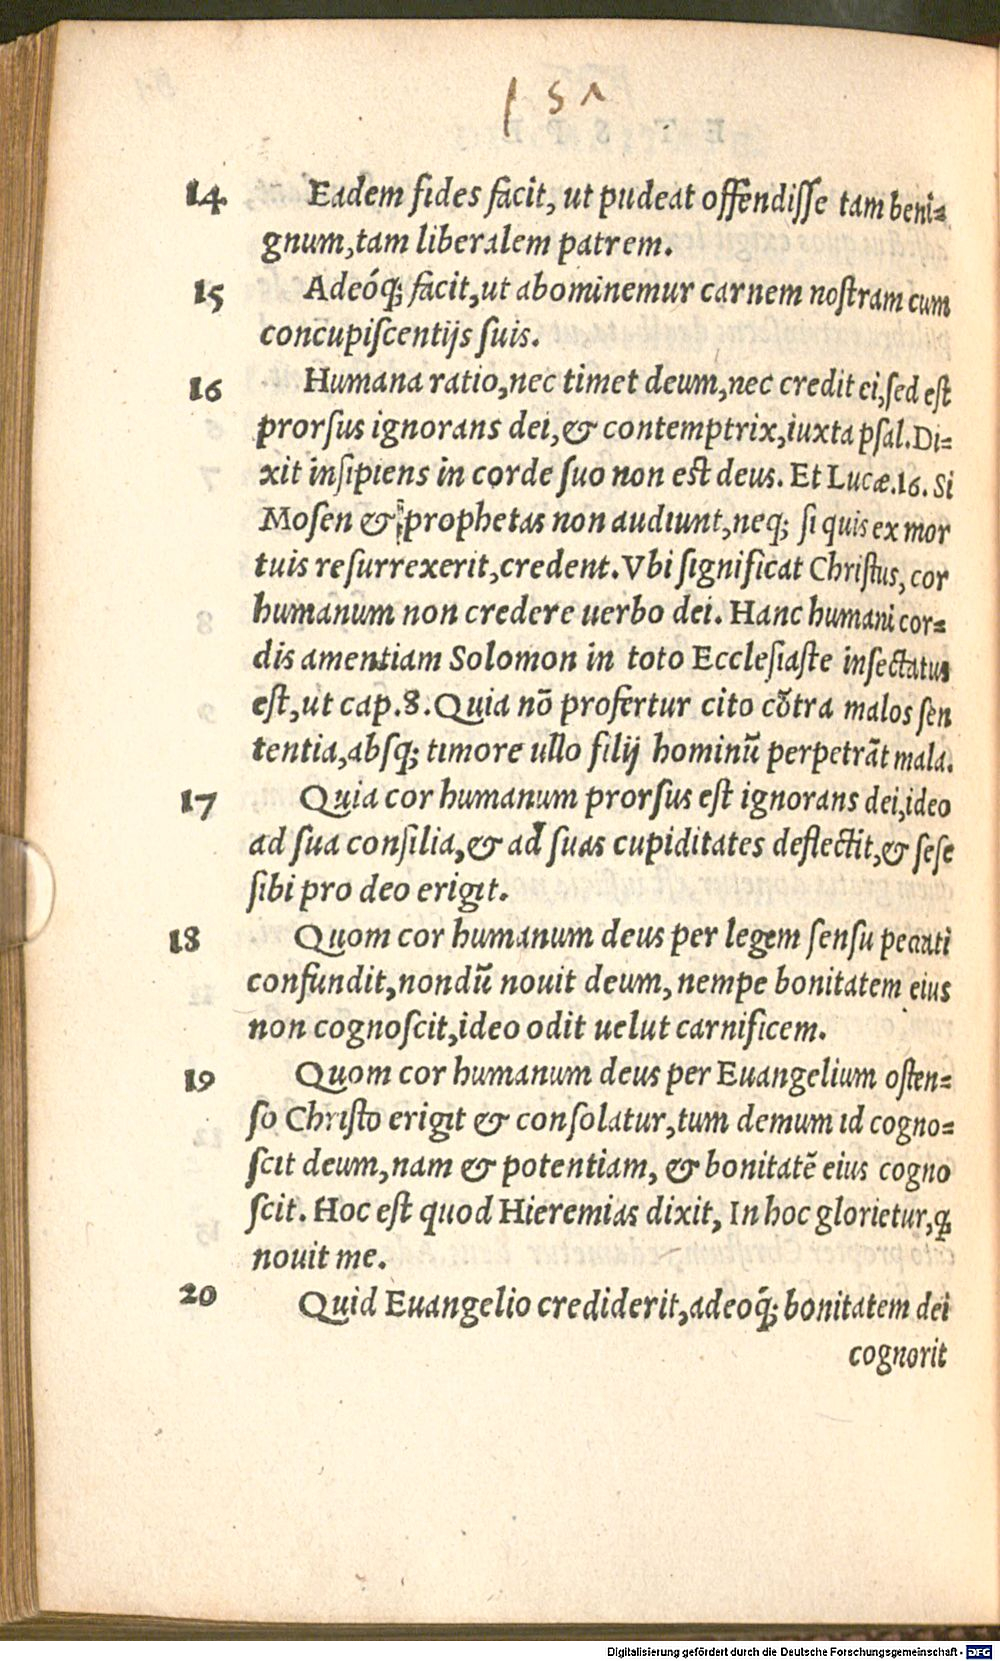 151
14 Eadem fides facit, ut pudeat offendisse tam beni=
gnum, tam liberalem patrem.
15 Adeóq; facit, ut abominemur carnem nostram cum
concupiscentijs suis.
16 Humana ratio, nec timet deum, nec credit ei, sed est
prorsus ignorans dei, & contemptrix, iuxta psal. Di=
xit insipiens in corde suo non est deus. Et Lucæ. 16. Si
Mosen & prophetas non audiunt, neq; si quis ex mor
tuis resurrexerit, credent. Vbi significat Christus, cor
humanum non credere uerbo dei. Hanc humani cor=
dis amentiam Solomon in toto Ecclesiaste insectatus
est, ut cap. 8. Quia nō profertur cito cōtra malos sen
tentia, absq; timore ullo filij hominū perpetrāt mala.
17 Quia cor humanum prorsus est ignorans dei, ideo
ad sua consilia, & ad suas cupiditates deflectit, & sese
sibi pro deo erigit.
18 Quom cor humanum deus per legem sensu peccati
confundit, nondū nouit deum, nempe bonitatem eius
non cognoscit, ideo odit uelut carnificem.
19 Quom cor humanum deus per Euangelium osten=
so Christo erigit & consolatur, tum demum id cogno=
scit deum, nam & potentiam, & bonitatē eius cogno
scit. Hoc est quod Hieremias dixit, In hoc glorietur, q
nouit me.
20 Quid Euangelio crediderit, adeoq́; bonitatem dei
cognorit
Digitalisierung gefördert durch die Deutsche Forschungsgemeinschaft - DFG